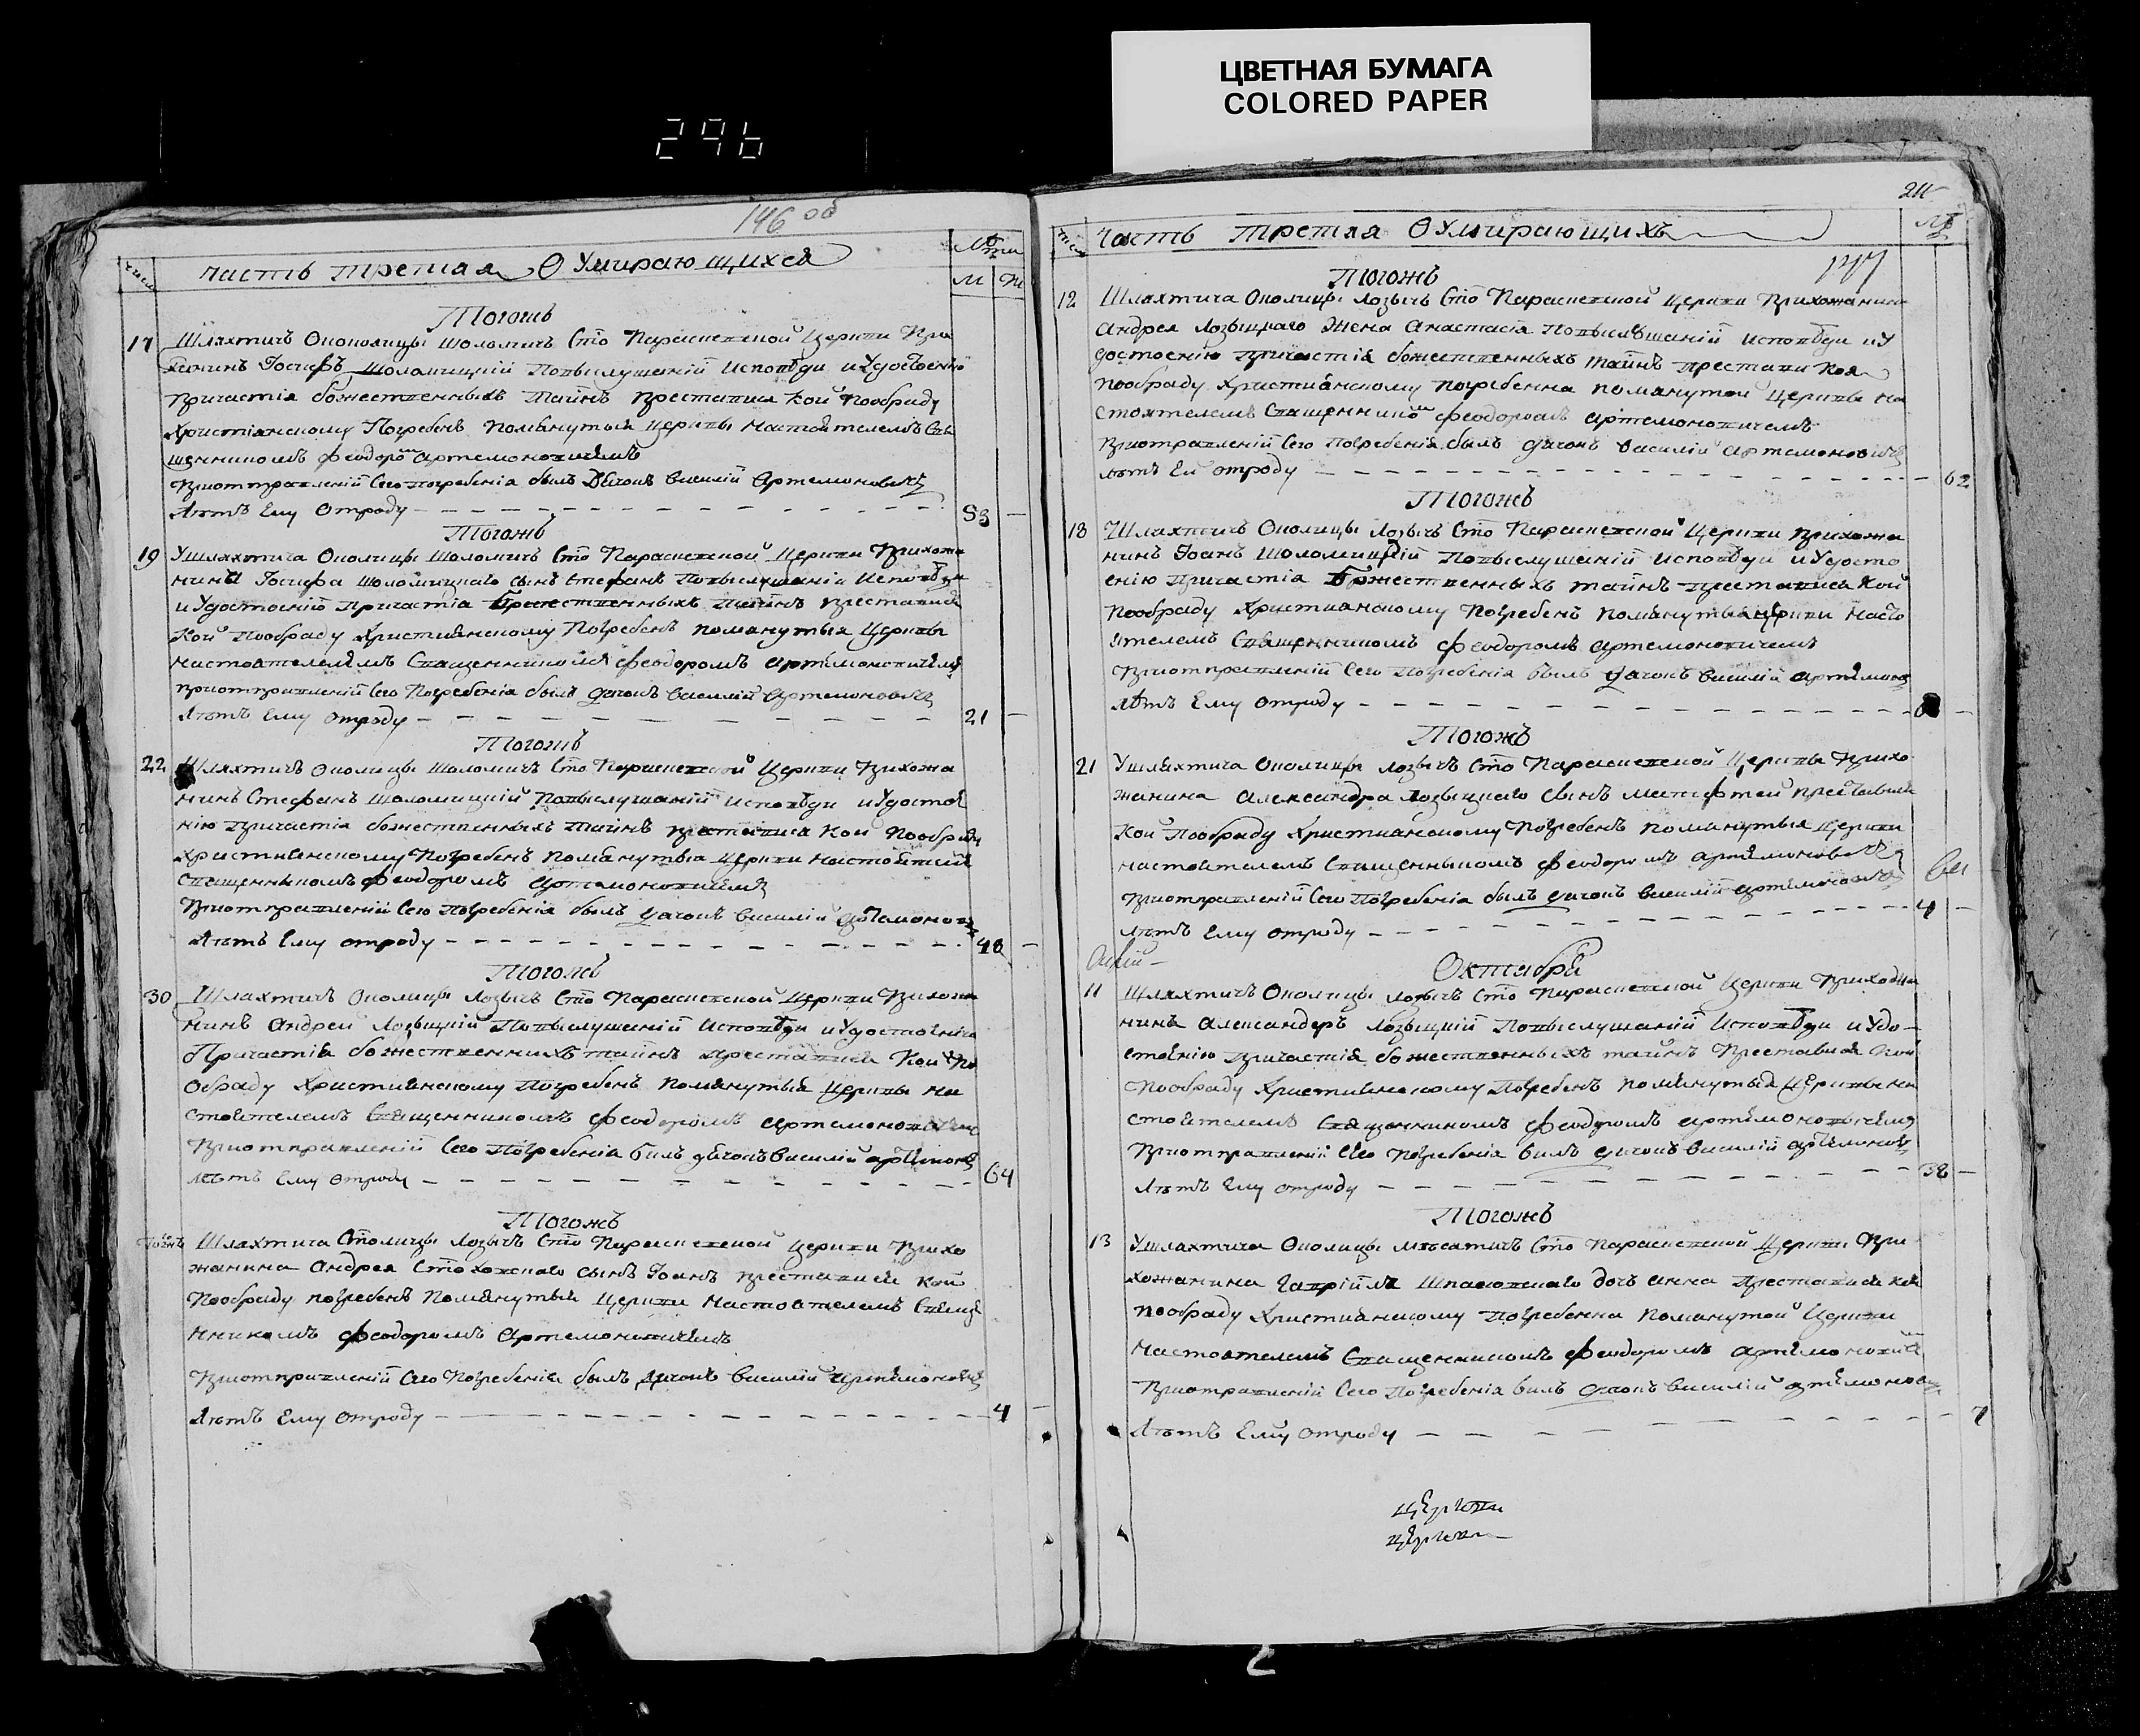 ЦВЕТНАЯ БУМАГА
COLORED PAPER
296
146 об
число
часть третая О Умирающихся
Лѣта
м
ж
Тогожъ
17
Шляхтичъ Околицы Шоломичъ Сто Параскевской Церкви При
жанинъ Іосифъ Шоломицкій Повыслушаній исповѣди иУдостоенію
Причастія божественныхъ Таинъ Преставися кой пообряду
Христіанскому Погребенъ Помянутыя Церквы Настоятелемъ Свя
щенникомъ феодоромъ Артемоновичемъ
Приотправленій Сего погребенія былъ Дячокъ Василій Артемоновичъ
Лѣтъ Ему Отроду
53
Тогожъ
19
УШляхтича Околицы Шоломичъ Сто Параскевской Церкви Прихожа
нина Іосифа Шоломицкаго сынъ Стефанъ Повыслушаніи Исповѣди
иУдостоенію Причастія Божественныхъ Таинъ Преставися
Кой Пообряду Христианскому Погребенъ Помянутыя Церквы
Настоятелемъ Священникомъ феодоромъ Артемоновичемъ
Приотправленій Сего Погребенія былъ дячокъ Василий Артемоновичъ
Лѣтъ Ему отроду
21
Тогожъ
22
Шляхтичъ Околицы Шоломичъ Сто Параскевской Церкви Прихожа
нинъ Стефанъ Шоломицкій Повыслушаній исповѣди иУдостое
нію Причастія божественныхъ Таинъ Преставися Кой Пообряду
Христианскому Погребенъ Помянутыя Церкви Настоятелемъ
Священникомъ феодоромъ Артемоновичемъ
Приотправленій Сего Погребенія былъ дячокъ Василій Артемонов
Лѣтъ Ему отроду
48
Тогожъ
30
Шляхтичъ Околицы Лозычъ Сто Параскевской Церкви Прихожа
нинъ Андрей Лозыцкій Повыслушаній Исповѣди иУдостоенію
Причастія божественнихъ таинъ Преставися Кой По
Обряду Христианскому Погребенъ Помянутыя Церквы На
стоятелемъ Священникомъ феодоромъ Артемоновичемъ
Приотправленій Сего Погребенія билъ дячокъ Василий Артемонов
Лѣтъ Ему Отроду
64
Тогожъ
Шляхтича Околицы Лозычъ Сто Параскевской Церкви Прихо
жанина Андрея сынъ Іоанъ Преставися Кой
Пообряду погребенъ Помянутыя Церкви Настоятелемъ Священ
нникомъ феодоромъ Артемоновичемъ
Приотправленій Сего Погребенія былъ Дячокъ Василий Артемоновичъ
Лѣтъ Ему Отроду
4
число
Часть третяя О Умирающихъ
Лѣ
147
Тогожъ
12
Шляхтича Околицы Лозычъ Сто Параскевской Церкви Прихожанина
Андрея Лозыцкаго Жена Анастасія Повыслушаній исповѣди иУ
достоенію причастія божественныхъ таинъ престави Коя
пообряду Христианскому погребенна помянутой Церквы На
стоятелемъ Священникомъ феодоромъ Артемоновичемъ
Приотправленій Сего Погребенія былъ дячокъ Василій Артемоновичъ
Лѣтъ Ей отроду
62
Тогожъ
18
Шляхтичъ Околицы Лозычъ Сто Параскевской Церкви Прихожа
нинъ Іоанъ Шоломицкій Повыслушаній исповѣди иУдосто
енію причастія Божественныхъ таинъ Преставися Кой
Пообряду Христианскому Погребенъ Помянутыя церкви Насто
ятелемъ Священникомъ феодоромъ Артемоновичемъ
Приотправленій Сего Погребенія былъ дячокъ Василій Артемонов
Лѣтъ Ему отроду
Тогожъ
21
Ушляхтича Околицы Лозычъ Сто Параскевской Церквы Прихо
жанина Александра Лозыцкаго сынъ преставися
Кой Пообряду Христианскому Погребенъ Помянутыя Церкви
настоятелемъ Священныкомъ феодоромъ Артемоновичемъ
Приотправленій Сего Погребенія былъ дячокъ Василий Артемонов
Лѣтъ Ему отроду
4
Октября
11
Шляхтичъ Околицы Лозычъ Сто Параскевской Церкви Прихожа
нинъ Александеръ Лозыцкій Повыслушаній Исповѣди иУдо
стоенію Причастія божественныхъ таинъ Преставися Кой
Пообряду Христианскому Погребенъ Помянутыя Церквы на
стоятелемъ Священникомъ феодоромъ Артемоновичемъ
Приотправленій Сего Погребенія билъ дячокъ Василій Артемонов
Лѣтъ Ему отроду
38
Тогожъ
13
Ушляхтича Околицы Сто Параскевской Церкви При
хожанина Гавріила Шпаковскаго дочъ Анна Преставися коя
пообряду Христианскому погребенна Помянутой Церкви
Настоятелемъ Священникомъ феодоромъ Артемонович
Приотправленій Сего Погребенія билъ дячокъ Василій Артемонов
Лѣтъ Ему отроду
7
церкви
церкви